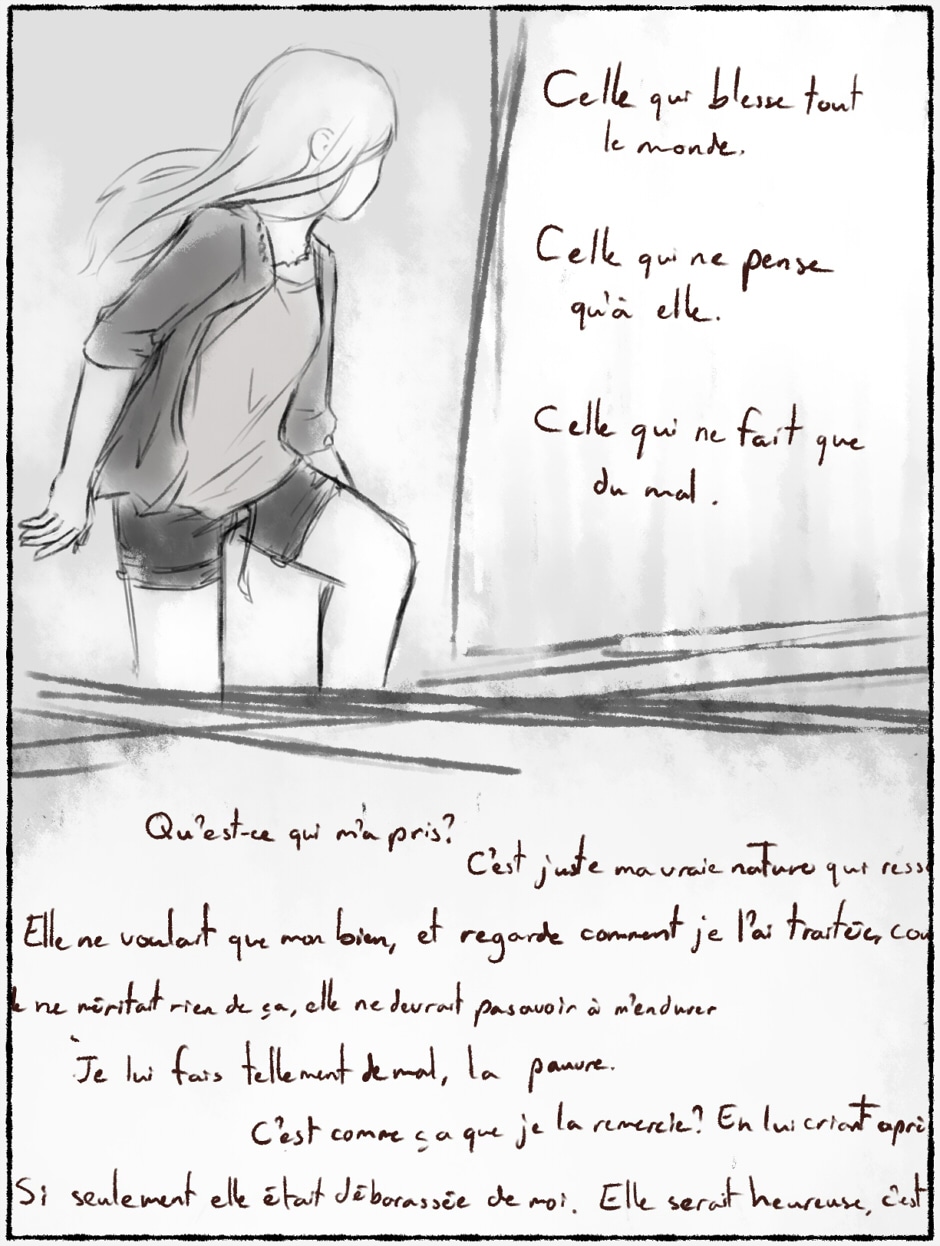 Celle qui blesse tout
le monde.
Celle qui ne pense
qu'à elle.
Celle qui ne fait que
du mal.
Qu'est-ce qui m'a pris?
C'est juste ma vraie nature qui ress
Elle ne voulait que mon bien, et regarde comment je l'ai traitée, co
ne méritait rien de ça, elle ne devrait pas avoir à m'endurer
Je lui fais tellement de mal, la pauvre.
C'est comme ça que je la remercie? En lui criant aprè
Si seulement elle était débarassée de moi. Elle serait heureuse, c'est